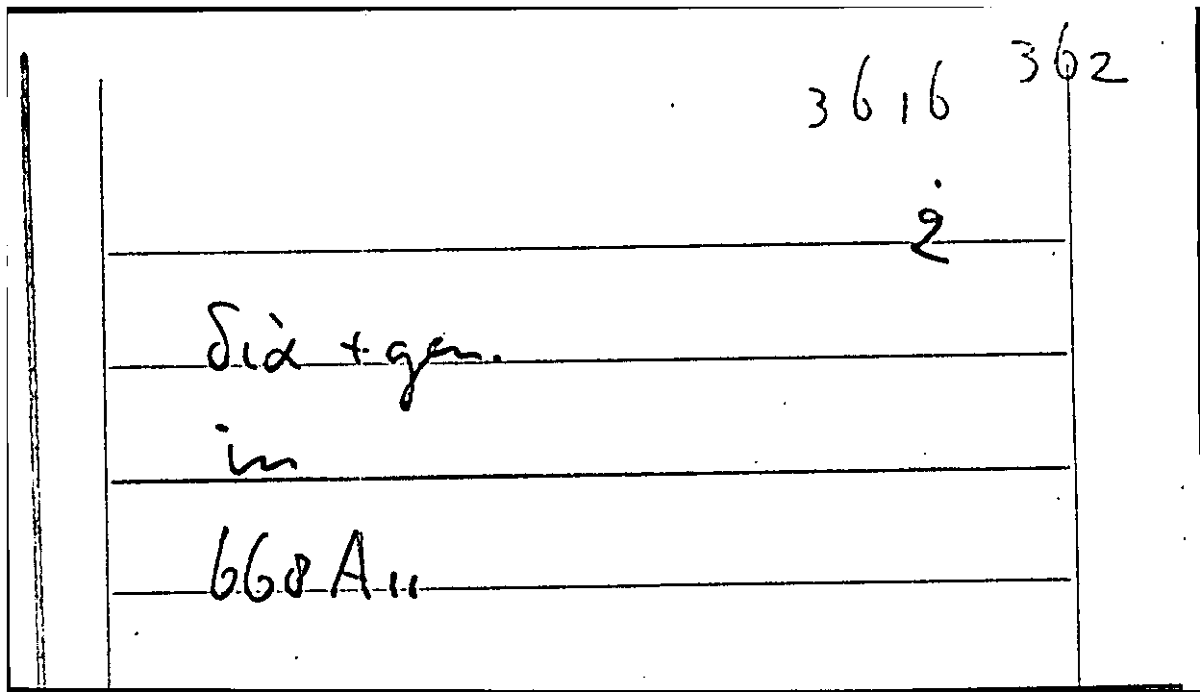 362
3616
2
διὰ + gen.
in
668 A 11